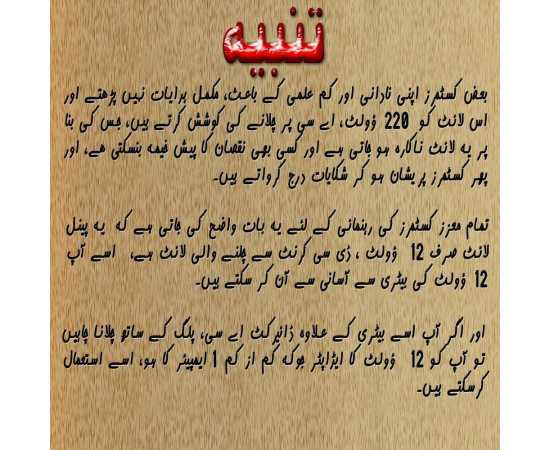 تنبیہ
بعض کسٹمرز اپنی نادانی اور کم علمی کے باعث، مکمل ہدایات نہیں پڑھتے اور
اس لائٹ کو 220 وولٹ، اے سی پر چلانے کی کوشش کرتے ہیں، جس کی بنا
پر یہ لائٹ ناکارہ ہو جاتی ہے اور کسی بھی نقصان کا پیش خیمہ بنسکتی ھے، اور
پھر کسٹمرز پریشان ہو کر شکایات درج کرواتے ہیں۔
تمام معزز کسٹمرز کی رہنمائی کے لئے یہ بات واضح کی جاتی ہے کہ یہ پینل
لائٹ صرف 12 وولٹ ، ڈی سی کرنٹ سے چلنے والی لائٹ ہے، اسے آپ
12 وولٹ کی بیٹری سے آسانی سے آن کر سکتے ہیں۔
اور اگر آپ اسے بیٹری کے علاوہ ڈائیرکٹ اے سی، پلگ کے ساتھ چلانا چاہیں
تو آپ کو 12 وولٹ کا ایڑاپٹر جوکہ کم از کم 1 ایمپیئر کا ہو، اسے استعمال
کرسکتے ہیں۔